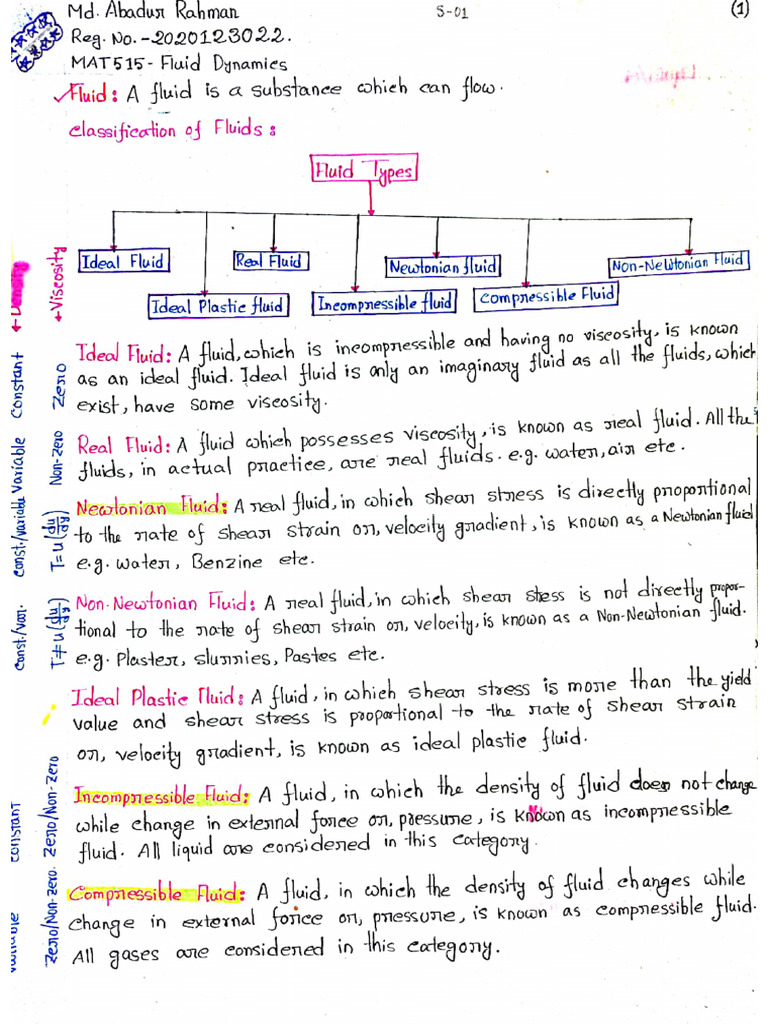 Md. Abadur Rahman
S-01
(1)
Reg. No.-2020123022.
MAT515- Fluid Dynamics
Fluid: A fluid is a substance which can flow.
Classification of Fluids:
Fluid Types
Ideal Fluid
Real Fluid
Newtonian fluid
Non-Newtonian Fluid
Ideal Plastic fluid
Incompressible fluid
Compressible Fluid
Density
Viscosity
Ideal Fluid: A fluid, which is incompressible and having no viscosity, is known
as an ideal fluid. Ideal fluid is only an imaginary fluid as all the fluids, which
exist, have some viscosity.
Constant
Zero
Real Fluid: A fluid which possesses viscosity, is known as real fluid. All the
fluids, in actual practice, are real fluids. e.g. water, air etc.
Variable
Non-zero
Newtonian Fluid: A real fluid, in which shear stress is directly proportional
to the rate of shear strain or, velocity gradient, is known as a Newtonian fluid
e.g. water, Benzine etc.
const./variable
T=u(du/dy)
Non-Newtonian Fluid: A real fluid, in which shear stess is not directly propor-
tional to the rate of shear strain or, velocity, is known as a Non-Newtonian fluid.
e.g. Plaster, slurries, Pastes etc.
const./var.
T≠u(du/dy)
Ideal Plastic Fluid: A fluid, in which shear stress is more than the yield
value and shear stress is proportional to the rate of shear strain
or, velocity gradient, is known as ideal plastic fluid.
Incompressible Fluid: A fluid, in which the density of fluid does not change
while change in external force or, pressure, is known as incompressible
fluid. All liquid are considered in this category.
constant
Zero/Non-zero
Compressible Fluid: A fluid, in which the density of fluid changes while
change in external force or, pressure, is known as compressible fluid.
All gases are considered in this category.
variable
Zero/Non-zero.